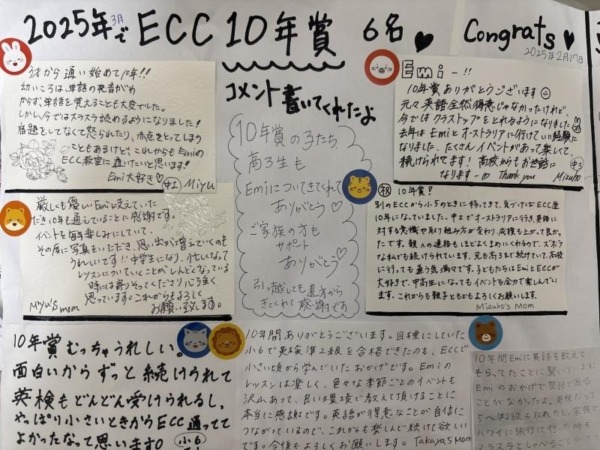 2025年3月でECC 10年賞 6名♥ Congrats♥
2025年2月17日
コメント書いてくれたよ
3才から通い始めて10年!!
幼いころは、単語の発音がわ
からず、単語を覚えることも大変でした。
しかし、今ではスラスラ読めるようになりました!
宿題としてなくて怒られたり、赤点をとってしまう
こともあるけど、これからもEmiの
ECC教室に通いたいと思います!
Emi大好き♡ 中1 Miyu
厳しくも優しいEmiに支えていた
だき10年も通えていることに感謝です。
イベントを毎年楽しみにしていて、
その度に写真をいただき、思い出が増えていくのも
うれしいです!!中学生になり、忙しくなって
レッスンについていくことがしんどくなっている
時には寄りそってくださり心強く
思っています。これからもよろしく
お願い致します。
Miyu's mom
10年賞の子たち
高3生も
Emiについてきてくれて
ありがとう♡
ご家族の方も
サポート
ありがとう♡
引っ越しても直方から
きてくれて感謝です
Emiー!!
10年賞ありがとうございます☺
元々英語全然得意じゃなかったけれど、
今ではクラストップをとれるようになりました!
去年はEmiとオーストラリアに行けていい経験に
なりました。たくさんイベントがあって楽しくて、
続けられてます!高校からもお世話に
なりますー Thank you 中3
Mizuho
祝 10年賞!
別のECCから小5のときに移ってきて、気づけばECC歴
10年になっていました。中2でオーストラリアに行き、英語に
対する意識や取り組み方が変わり、成績も上がって良かっ
たです。親への連絡もほどよくまめにくれるので、ズボラ
な私でも続けられています。兄も高3まで続けていて、高校
に行っても通う気満々です。子どもたちはEmiとECCが
大好きで、中高生になってもイベントを全力で楽しんで
います。これからも親子ともどもよろしくお願いします。
Mizuho's Mom
10年賞むっちゃうれしい。
面白いからずっと続けられて
英検もどんどん受けられるし、
やっぱり小さいときからECC通ってて
よかったなって思います。 小6
10年間ありがとうございます。目標にしていた
小6で英検準2級を合格できたのも、ECCで
小さい頃から学んでいたおかげです。Emiの
レッスンは楽しく、色々な季節ごとのイベントも
沢山あって、良い環境で教えて頂けることに
本当に感謝です。英語が得意なことが自信に
つながっているので、これからも楽しんで続けて欲しい
です。今後もよろしくお願いします。Takaya's Mom
10年間Emiに英語を教えて